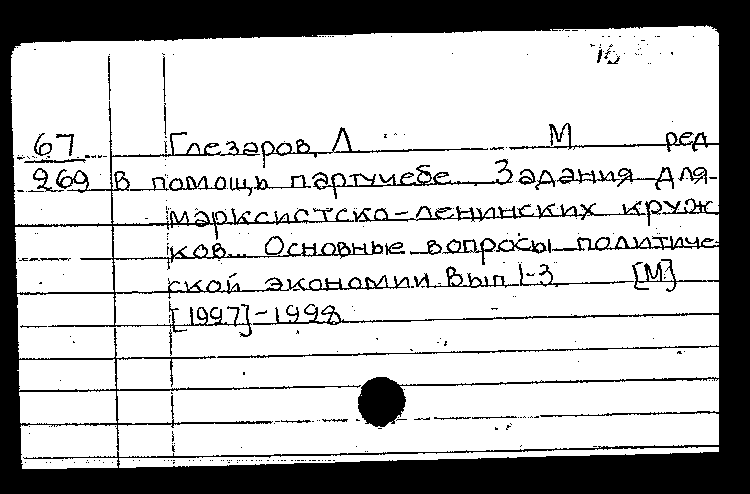 76
67 Глезаров, Л М ред
269 В помощь партучебе. Задания для
марксистско-ленинских круж
ков... Основные вопросы политиче-
ской экономии. Вып 1-3 [М]
[1927]-1928